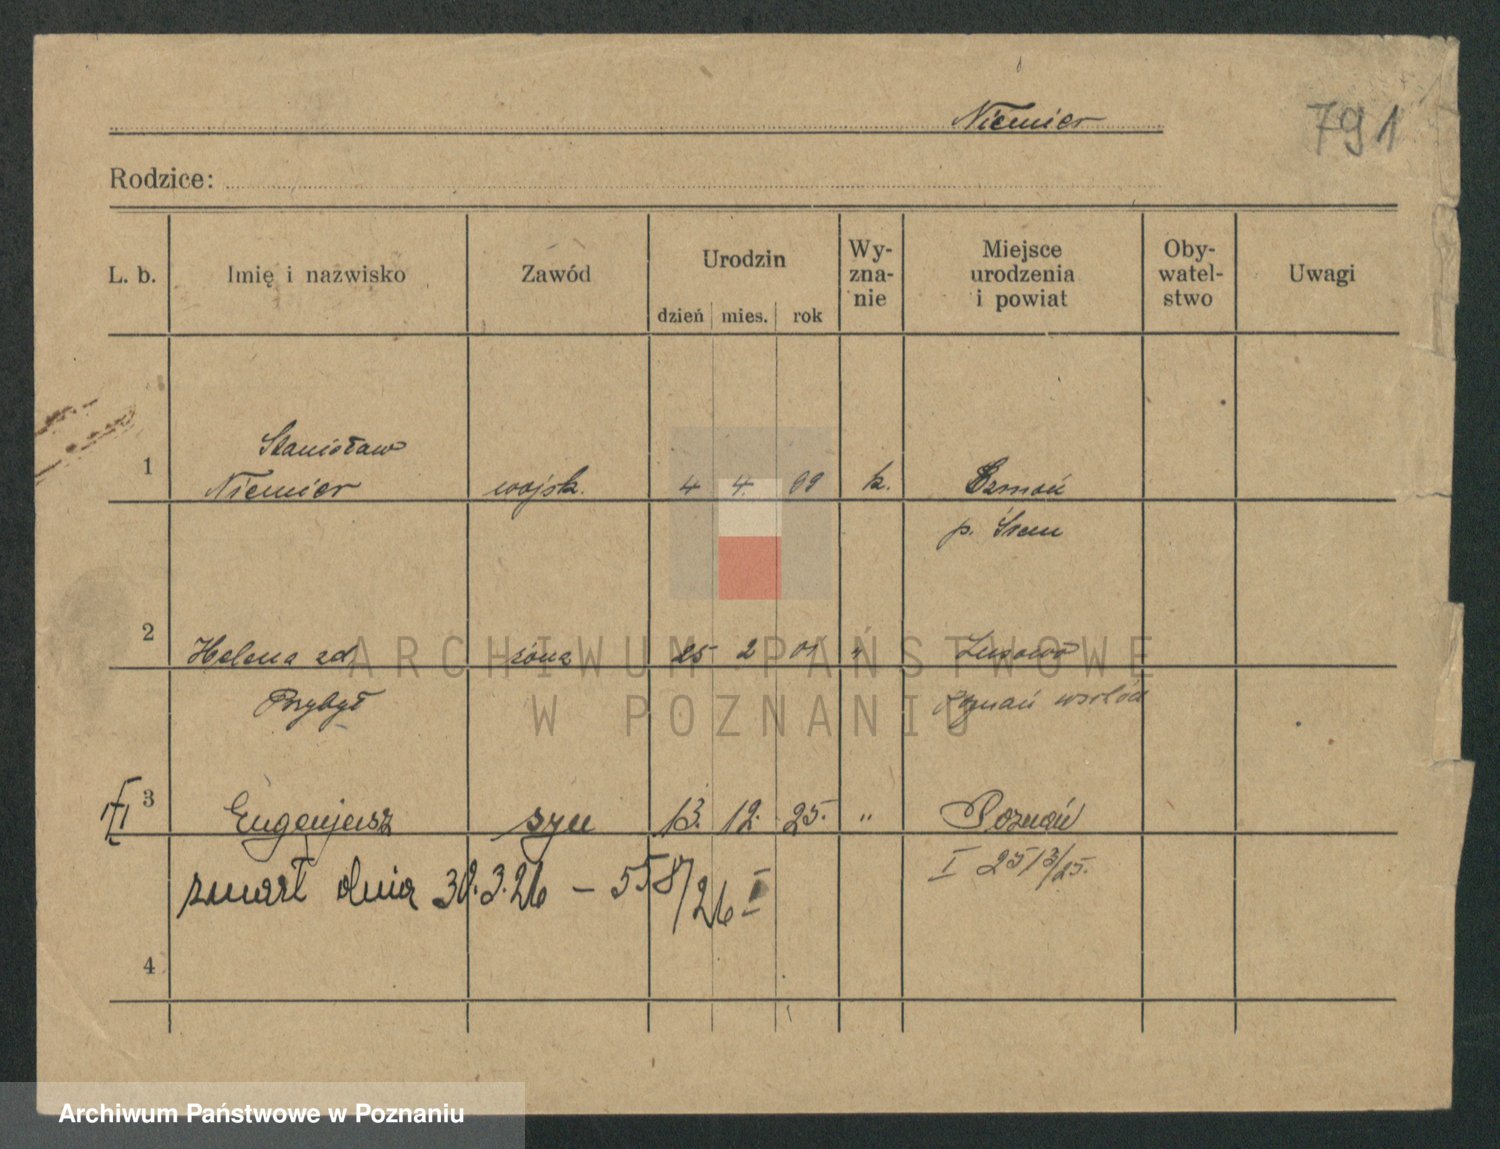 Niemier
791
Rodzice:
L. b. Imię i nazwisko Zawód Urodzin dzień mies. rok Wy-zna-nie Miejsce urodzenia i powiat Oby-watel-stwo Uwagi
Stanisław
1 Niemier wojsk. 4 4. 99 k.
p. Śrem
2 Helena zd. żona 25 2 01 "
Przybył
Poznań wschód
3 Eugenjusz syn 13. 12. 25. " Poznań
I 2513/25.
zmarł dnia 30.3.26 – 558/26 I
4
ARCHIWUM PAŃSTWOWE
W POZNANIU
Archiwum Państwowe w Poznaniu